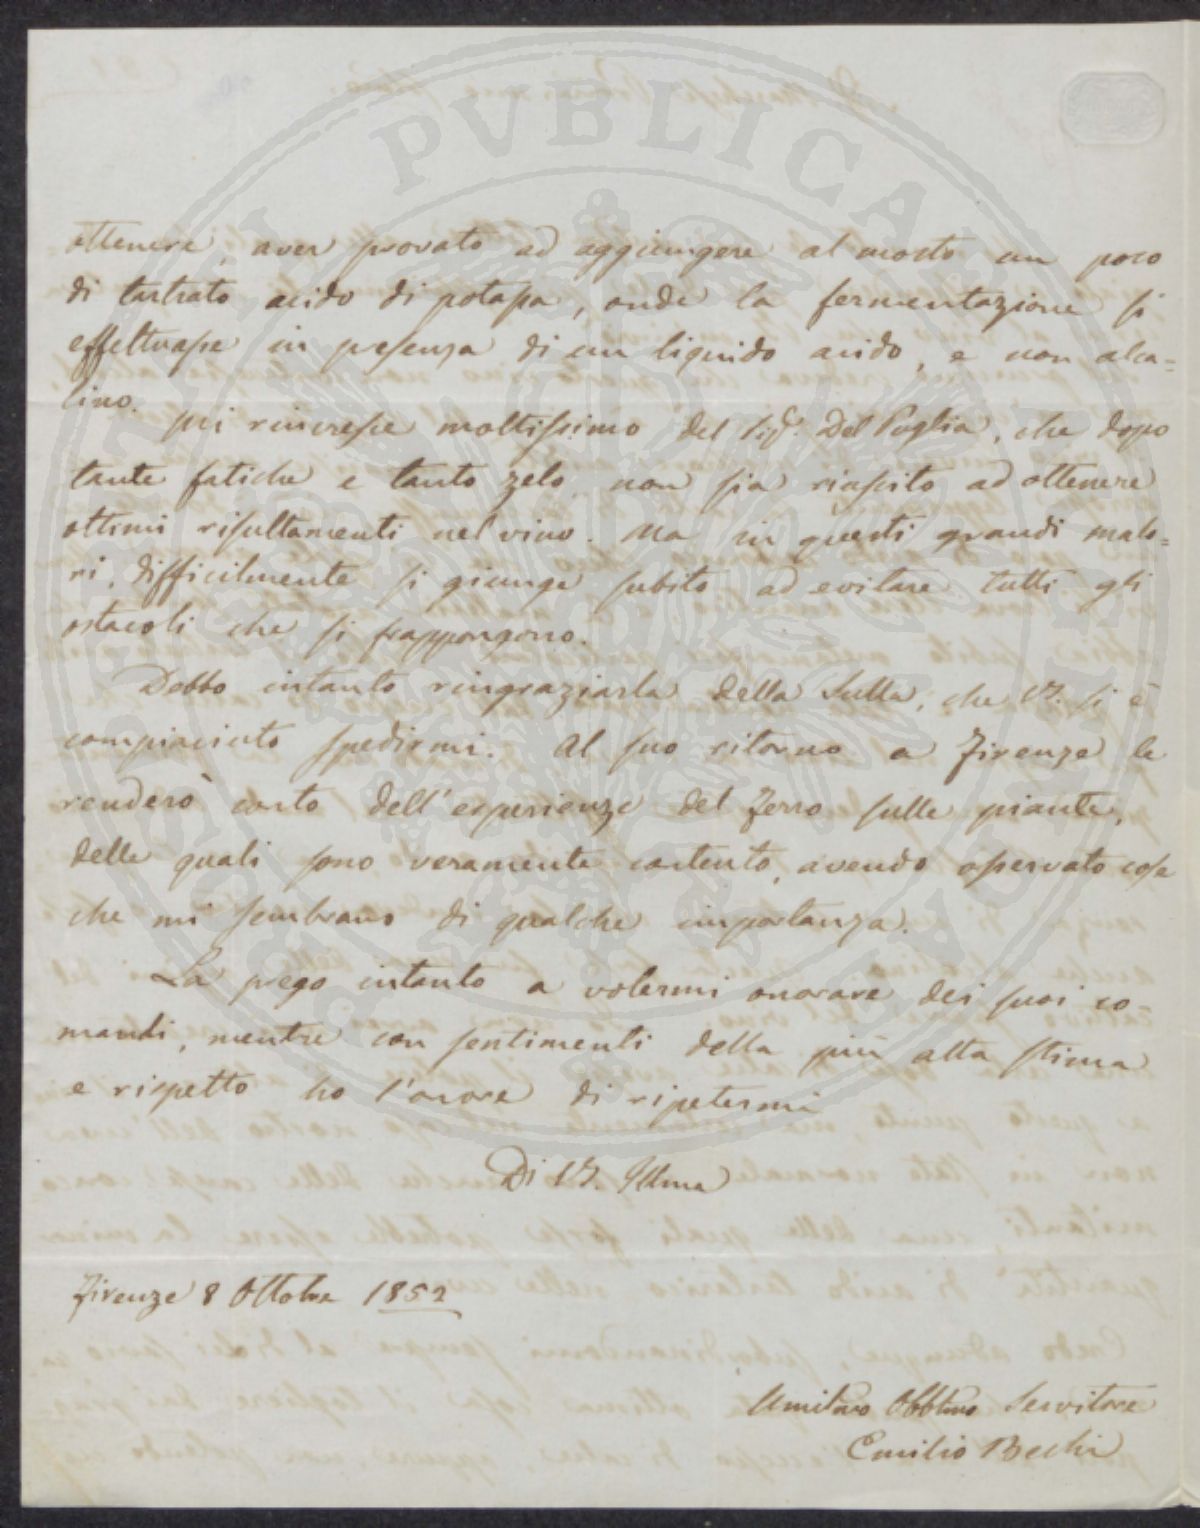 ottenere, aver provato ad aggiungere al mosto un poco
di tartrato acido di potassa, onde la fermentazione si
effettuasse in presenza di un liquido acido, e non alca=
lino.
Mi rincresce moltissimo del Sigr. Del Puglia, che dopo
tante fatiche e tanto zelo, non sia riuscito ad ottenere
ottimi risultamenti nel vino. Ma in questi grandi malo=
ri, difficilmente si giunge subito ad evitare tutti gli
ostacoli che si frappongono.
Debbo intanto ringraziarla della Sulla, che V.S. si è
compiaciuto spedirmi. Al suo ritorno a Firenze le
renderò conto dell'esperienze del Ferro sulle piante,
delle quali sono veramente contento, avendo osservato cose
che mi sembrano di qualche importanza.
La prego intanto a volermi onorare dei suoi co-
mandi, mentre con sentimenti della più alta stima
e rispetto ho l'onore di ripetermi
Di V.S. Illma
Firenze 8 Ottobre 1852
Umilmo Obblmo Servitore
Emilio Bechi